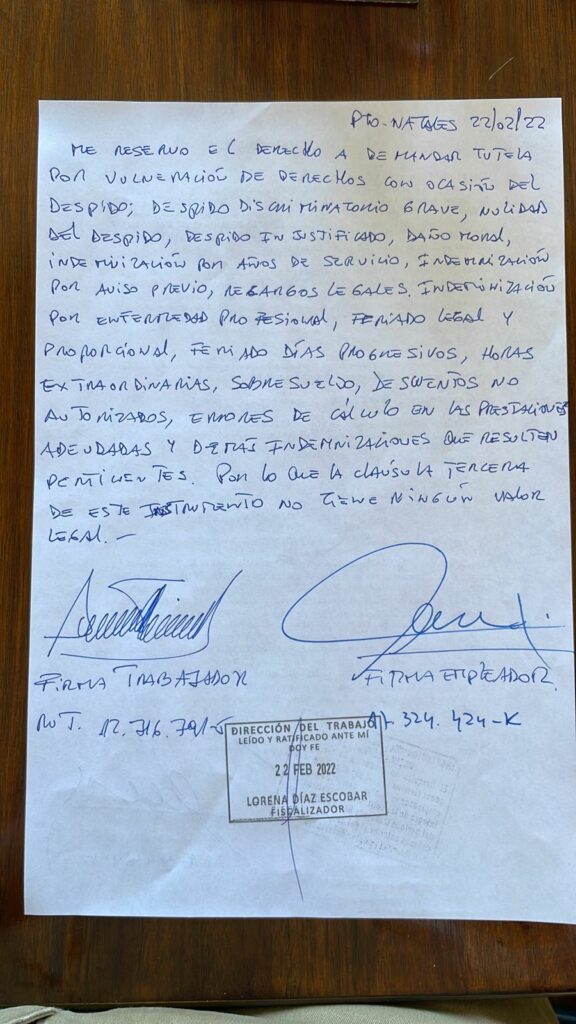 PTO. NATALES 22/02/22
ME RESERVO EL DERECHO A DEMANDAR TUTELA
POR VULNERACIÓN DE DERECHOS CON OCASIÓN DEL
DESPIDO; DESPIDO DISCRIMINATORIO GRAVE, NULIDAD
DEL DESPIDO, DESPIDO INJUSTIFICADO, DAÑO MORAL,
INDEMNIZACIÓN POR AÑOS DE SERVICIO, INDEMNIZACIÓN
POR AVISO PREVIO, RECARGOS LEGALES. INDEMNIZACIÓN
POR ENFERMEDAD PROFESIONAL, FERIADO LEGAL Y
PROPORCIONAL, FERIADO DÍAS PROGRESIVOS, HORAS
EXTRAORDINARIAS, SOBRESUELDO, DESCUENTOS NO
AUTORIZADOS, ERRORES DE CÁLCULO EN LAS PRESTACIONES
ADEUDADAS Y DEMÁS INDEMNIZACIONES QUE RESULTEN
PERTINENTES. POR LO QUE LA CLAÚSULA TERCERA
DE ESTE INSTRUMENTO NO TIENE NINGÚN VALOR
LEGAL.—
FIRMA TRABAJADOR FIRMA EMPLEADOR.
RUT. 12.716.791-5 324.424-K
DIRECCIÓN DEL TRABAJO
LEÍDO Y RATIFICADO ANTE MÍ
DOY FE
22 FEB 2022
LORENA DÍAZ ESCOBAR
FISCALIZADOR